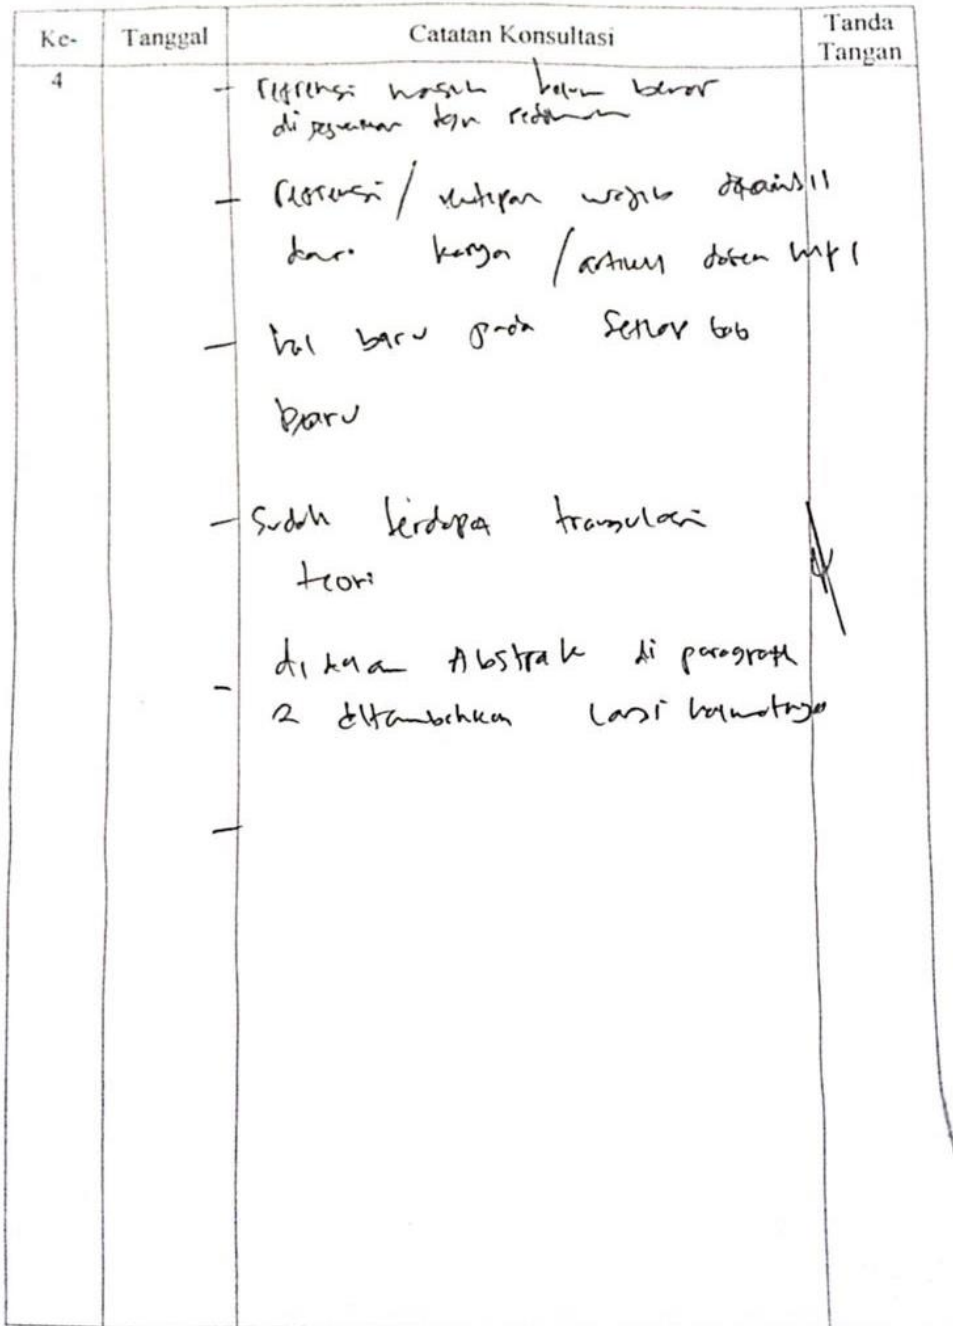 Ke- Tanggal Catatan Konsultasi Tanda Tangan
4
- referensi masih belum benar
di sesuaikan dgn
- referensi / kutipan wajib diambil
dari karya / artikel dosen MPI
- hal baru pada setiap bab
baru
- Sudah terdapat
teori
- Abstrak di paragraph
2 ditambahkan lagi kalimatnya
-